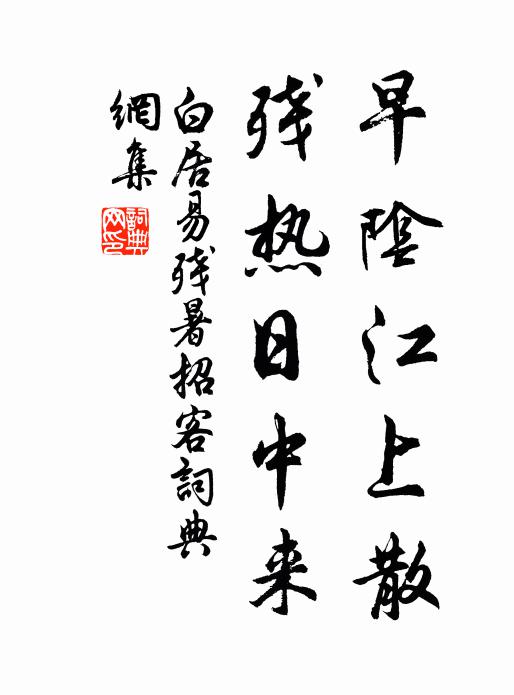 早陰江上散
残热日中来
白居易残暑招客詞典
網集
詞典
网印